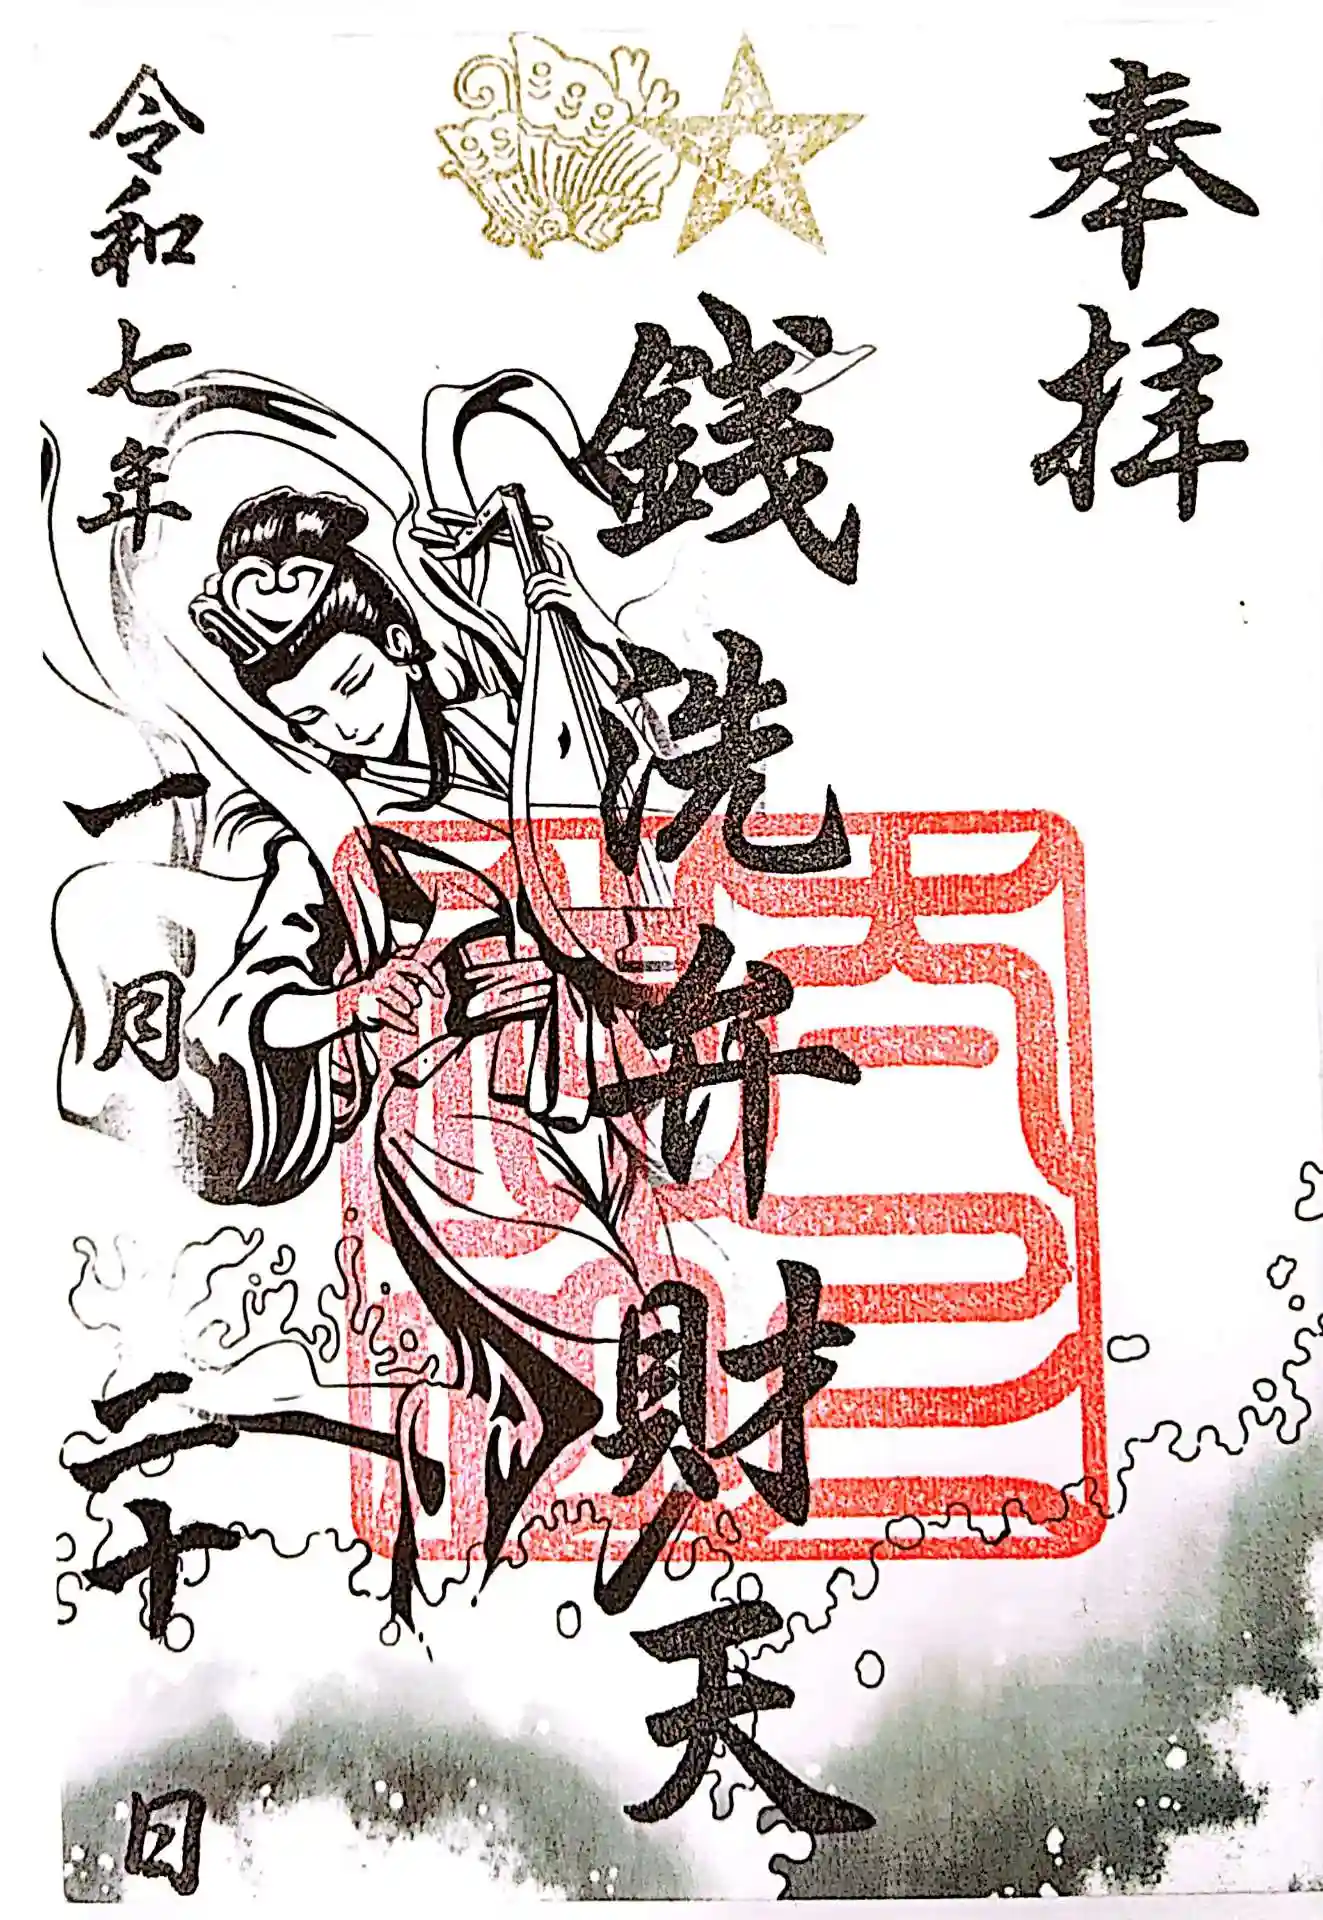 奉拝
銭洗弁財天
令和七年一月二十日